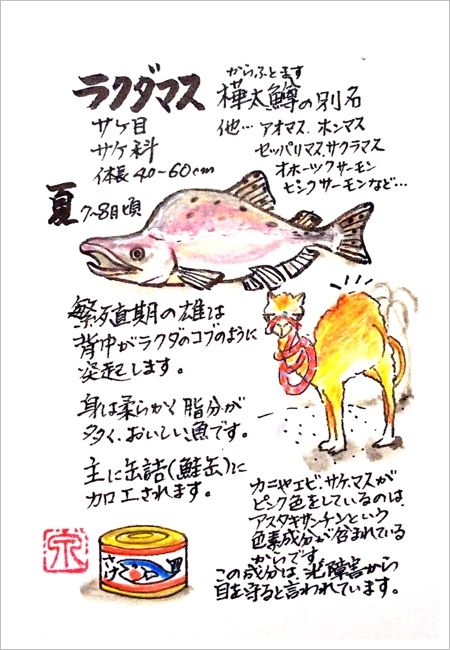 ラクダマス
サケ目
サケ科
体長40〜60cm
夏 7〜8月頃
からふとます
樺太鱒の別名
他…アオマス、ホンマス
セッパリマス、サクラマス
オホーツクサーモン
ピンクサーモンなど…
繁殖期の雄は
背中がラクダのコブのように
突起します。
身は柔らかく脂分が
多く、おいしい魚です。
主に缶詰(鮭缶)に
加工されます。
さけ
カニやエビ、サケ、マスが
ピンク色をしているのは、
アスタキサンチンという
色素成分が含まれている
からです
この成分は、光障害から
目を守ると言われています。